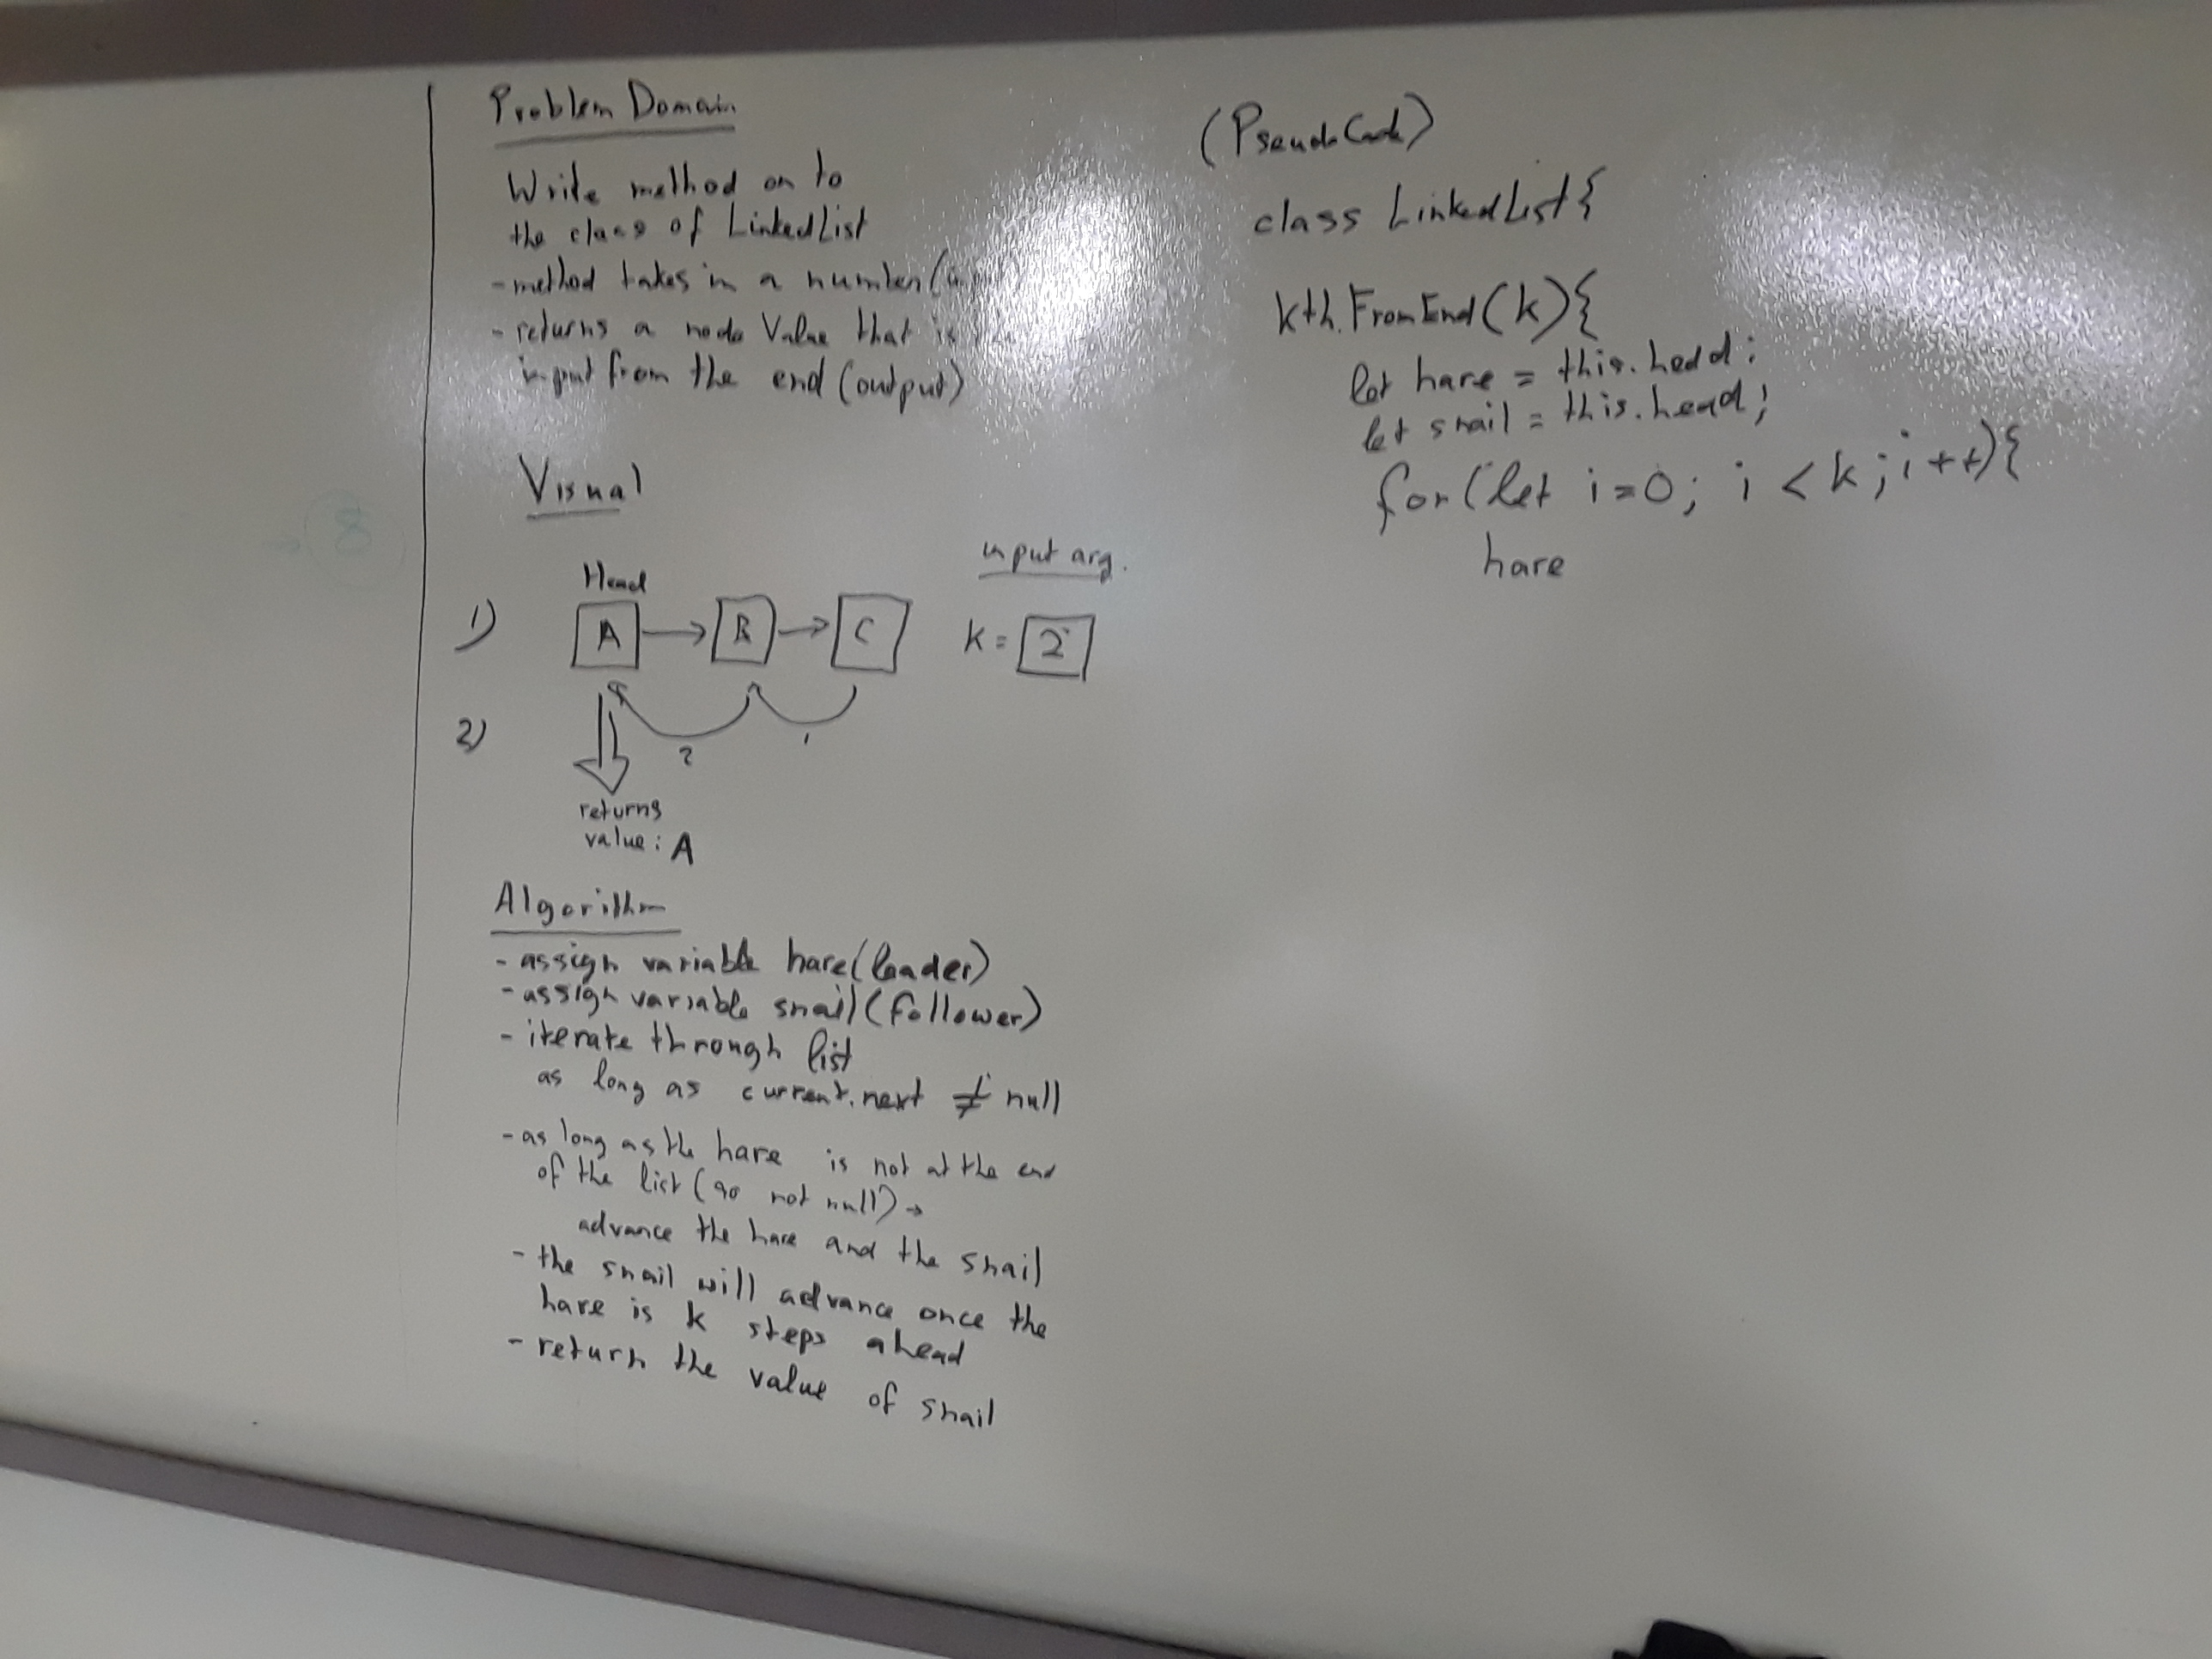 Problem Domain
Write method on to
the class of LinkedList
- method takes in a number (
- returns a node Value that is
input from the end (output)
Visual
Head
input arg.
1) A → B → C K = 2
2)
2 1
returns
value: A
Algorithm
- assign variable hare (leader)
- assign variable snail (follower)
- iterate through list
as long as current.next ≠ null
- as long as the hare is not at the end
of the list (so not null) →
advance the hare and the snail
- the snail will advance once the
hare is k steps ahead
- return the value of snail
(PseudoCode)
class LinkedList{
kth.FromEnd(k){
let hare = this.head;
let snail = this.head;
for(let i=0; i < k; i++){
hare
→ 8